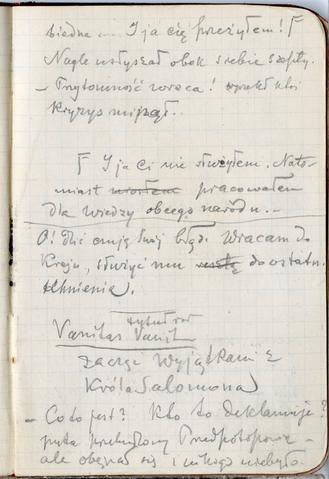 biedna ... I ja cię przeżyłem! F
Nagle usłyszał obok siebie szepty.
– Przytomność wraca! rzekł ktoś
Kryzys minął..
F I ja Ci nie służyłem. Nato-
miast niosłem pracowałem
dla wiedzy obcego narodu..
O! Dziś czuję swój błąd. Wracam do
Kraju, służyć mu do ostatn.
tchnienia.
tytuł
Vanitas Vanit
zacząć wyjątkami z
Króla Salomona
– Co to jest? Kto to deklamuje?
pyta przebudzony Przedpotopowy –
ale obejrzał się i nikogo nie było.